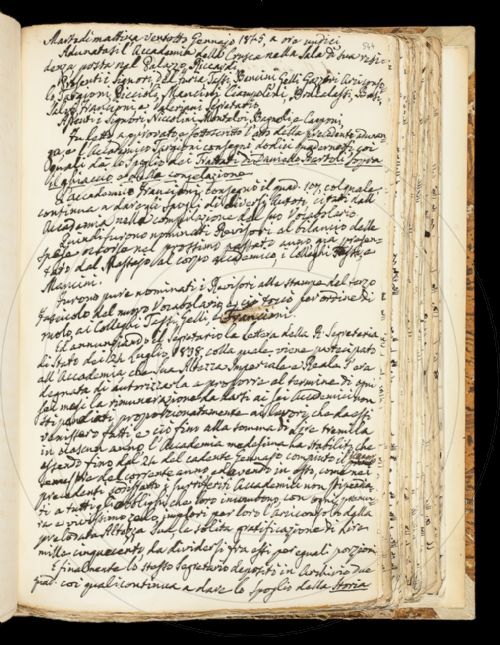 Martedì mattina ventotto Gennaro 1845, a ore undici
544
Adunatasi l'Accademia della Crusca nella Sala di sua resi-
denza posta nel Palazzo Riccardi.
Presenti i Signori, Del Pria, Tassi, Bencini, Gelli, Gazzeri, Arciconsolo
lo, Targioni, Piccioli, Mancini, Ciampolini,
Salvi, Francioni, e Valeriani Segretario.
Assenti i Signori Niccolini, Montalvi, Bagnoli, e Capponi.
Fu letto, approvato, e sottoscritto l'atto della precedente Adunan-
za, e l'Accademico Targioni consegnò dodici quadernetti, coi
quali dà lo Spoglio dei Trattati di Daniello Bartoli sopra
il ghiaccio e della consolazione.
L'Accademico Francioni consegnò il quad. 107 col quale
continua a dare gli Spogli di diversi Autori, citati dall'
Accademia nella compilazione del suo Vocabolario.
Quindi furono nominati Revisori al bilancio delle
spese occorse nel prossimo passato anno, già presen-
tato dal Massajo al corpo accademico, i Colleghi Tassi, e
Mancini.
Furono pure nominati i Revisori alle stampe del terzo
fascicolo del nuovo Vocabolario, e ciò fecesi per ordine di
ruolo, ai Colleghi Tassi, Gelli, e Francioni.
Ed annunziando il Segretario la lettera della R. Segreteria
di Stato dei 24 Luglio, 1838, colla quale viene partecipato
all'Accademia che Sua Altezza Imperiale e Reale s'era
degnata di autorizzarla a proporre al termine di ogni
sei mesi la rimunerazione da darsi ai sei Accademici non
stipendiati proporzionatamente ai lavori, che da essi
venissero fatti, e ciò fino alla somma di Lire tremila
in ciascun anno, l'Accademia medesima ha stabilito, che
essendo fino dal 21 del cadente Gennajo compiuto il
semestre del corrente anno, ed avendo in esso, come nei
precedenti soddisfatto i surriferiti Accademici non stipendia-
ti a tutti gli obblighi, che loro incombono, con ogni premu-
ra e vivissimo zelo, implori per loro l'Arciconsolo dalla
prelodata Altezza Sua la solita gratificazione di Lire
mille cinquecento da dividersi fra essi per eguali porzioni.
E finalmente lo stesso Segretario depositò in Archivio due
quad. coi quali continua a dare lo Spoglio della Storia